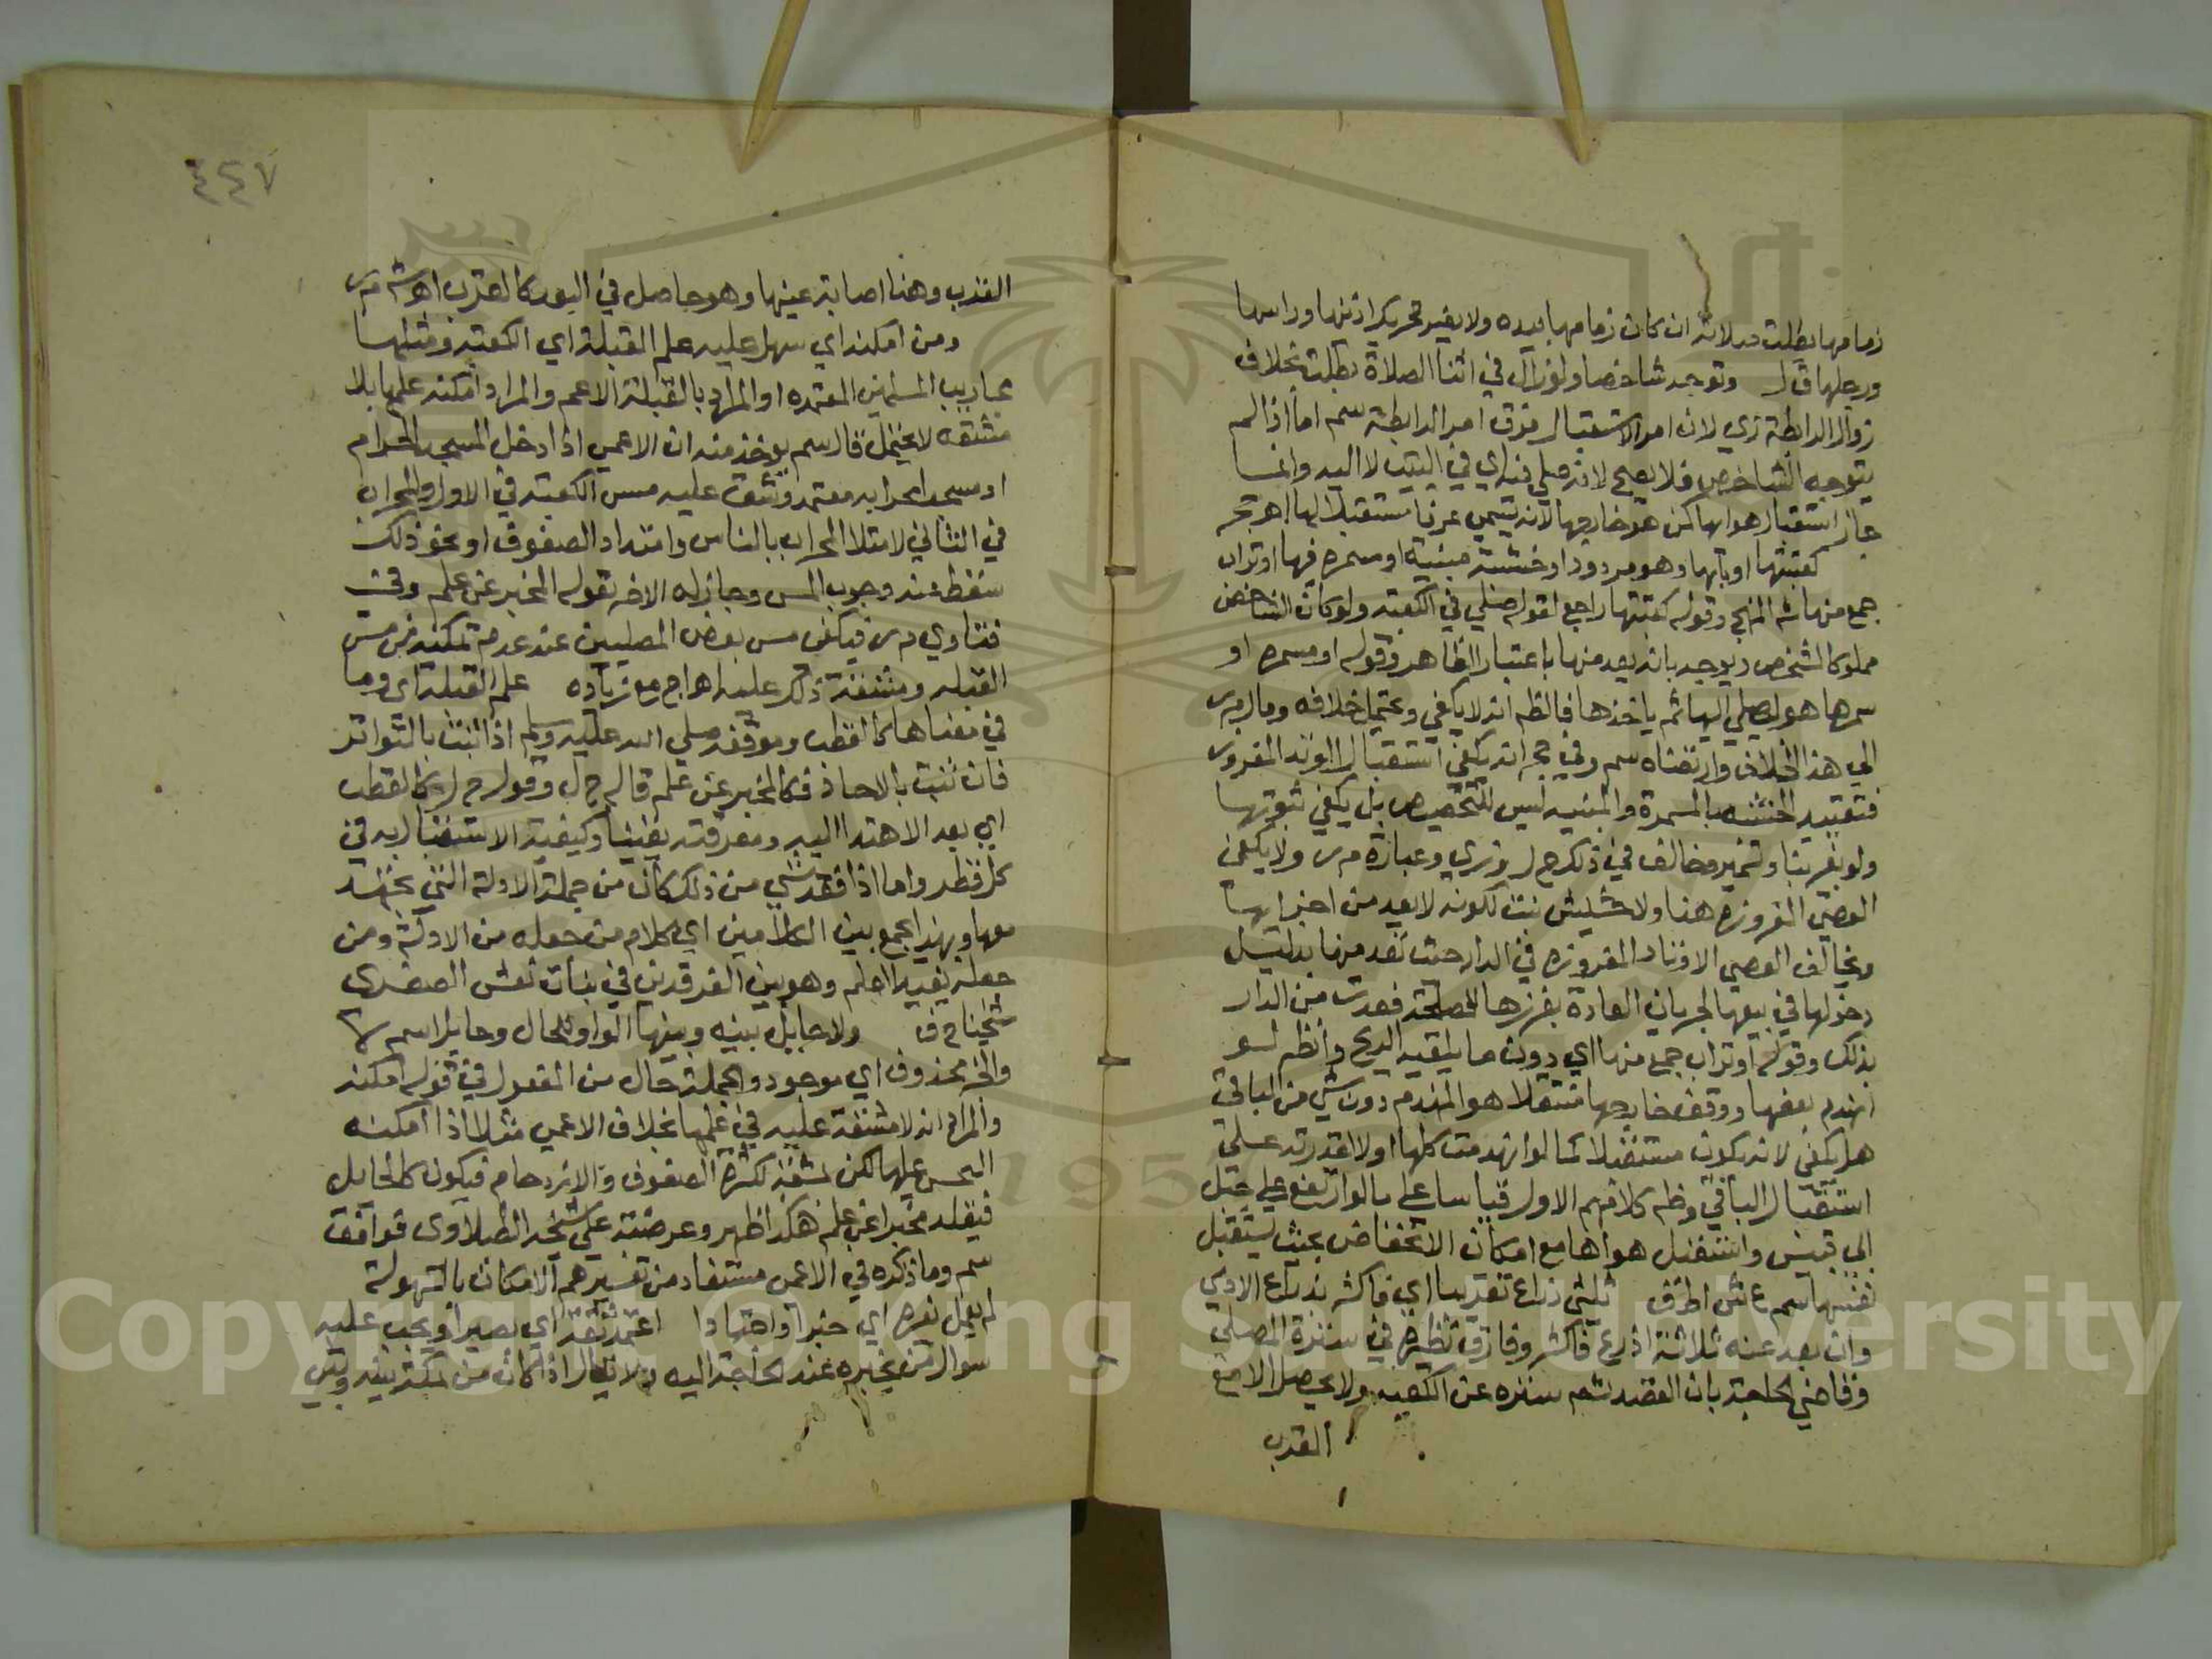 زمامها بطلت صلاته ان كان زمامها بيده ولا يضر تحريك اذنها وراسها
ورجلها ق ل وتوجه شاخصا ولو زال في اثنا الصلاة بطلت بخلاف
زوال الرابطة زي لان امر الاستقبال فوق امر الرابطة سم اما اذا لم
يتوجه الشاخص فلا يصح لانه صلي فيه اي في البيت لا اليه وانما
جاز استقبال هوائها لمن هو خارجها لانه يسمي عرفا مستقبلا لها اهـ حجر
كعتبتها او بابها وهو مردود او خشبة مبنية او مسمرة فيها او تراب
جمع منها شم المنهج وقوله كعتبتها راجع لقوله صلي في الكعبة ولو كان الشاخص
مملوكا لشخص ويوجه بانه يعد منها باعتبار الظاهر وقوله او مسمرة او
سمرها هو ليصلي اليها ثم ياخذها فالظم انه لا يكفي ويحتمل خلافه ومال م ر
الي هذا الخلاف وارتضاه سم وفي حجر انه يكفي استقبال الوتد المغروز
فتقييد الخشبة بالمسمرة والمبنية ليس للتخصيص بل يكفي ثبوتها
ولو بغير بنا وتسمير وخالف في ذلك ح ل وزي وعبارة م ر ولا يكفي
العصي المغروزة هنا ولا حشيش نبت لكونه لا يعد من اجزائها
ويخالف العصي الاوتاد المغروزة في الدار حيث تعد منها بدليل
دخولها في بيعها لجريان العادة بغرزها لمصلحة فعدت من الدار
بذلك وقوله او تراب جمع منها اي دون ما يلقيه الريح وانظم لو
انهدم بعضها ووقف خارجها مستقبلا هو المنهدم دون شي من الباقي
هل يكفي لانه يكون مستقبلا كما لو انهدمت كلها او لا لقدرته علي
استقبال الباقي وظم كلامهم الاول قياسا علي ما لو ارتفع علي جبل
ابي قبيس واستقبل هواها مع امكان الانخفاض بحيث يستقبل
نفسها سم ع ش اطف ثلثي ذراع تقريبا اي فاكثر بذراع الادمي
وان بعد عنه ثلاثة اذرع فاكثر وفارق نظيره في سترة المصلي
وقاضي الحاجة بان القصد ثم ستره عن الكعبة ولا يحصل الا مع
القرب
٤٤٧
القرب وهنا اصابة عينها وهو حاصل في البعد كالقرب اهـ ش م ر
ومن امكنه اي سهل عليه علم القبلة اي الكعبة ومثلها
محاريب المسلمين المعتمده او المراد بالقبلة الاعم والمراد امكنه علمها بلا
مشقه لا تحتمل قال سم يؤخذ منه ان الاعمي اذا دخل المسجد الحرام
او مسجدا محرابه معتمد وشق عليه مس الكعبة في الاول والمحراب
في الثاني لامتلا المحراب بالناس وامتداد الصفوف او نحو ذلك
سقط عنه وجوب المس وجاز له الاخذ بقول المخبر عن علم وفي
فتاوي م ر فيكفي مس بعض المصلين عند عدم تمكنه من مس
القبلة ومشقة ذلك عليه اهـ ا ج مع زيادة علم القبلة اي وما
في معناها كالقطب وموقفه صلي الله عليه وسلم اذا ثبت بالتواتر
فان ثبت بالاحاد فكالمخبر عن علم قاله ح ل وقول ح ل كالقطب
اي بعد الاهتدا اليه ومعرفته يقينا وكيفية الاستقبال به في
كل قطر واما اذا فقد شي من ذلك كان من جملة الادلة التي يجتهد
معها وبهذا يجمع بين الكلامين اي كلام من جعله من الادلة ومن
جعله يقينا اعلم وهو بين الفرقدين في بنات نعش الصغري
شيخنا ح ف ولا حايل بينه وبينها الواو للحال وحايل اسم لا
والخبر محذوف اي موجود والجملة حال من المفعول في قوله امكنه
والمراد انه لا مشقة عليه في علمها بخلاف الاعمي مثلا اذا امكنه
التحسس عليها لكن بمشقة لكثرة الصفوف والازدحام فيكون كالحايل
فيقلد مخبرا عن علم هكذا ظهر وعرضته علي شيخنا الطبلاوي فوافق
سم وما ذكره في الاعمي مستفاد من تفسيرهم الامكان بالسهولة
لم يعمل بغيره اي خبرا او اجتهادا اعتمد ثقة اي بصيرا ويجب عليه
سوال من يخبره عند الحاجة اليه ولا يقال اذا كان من بمكة بينه وبين